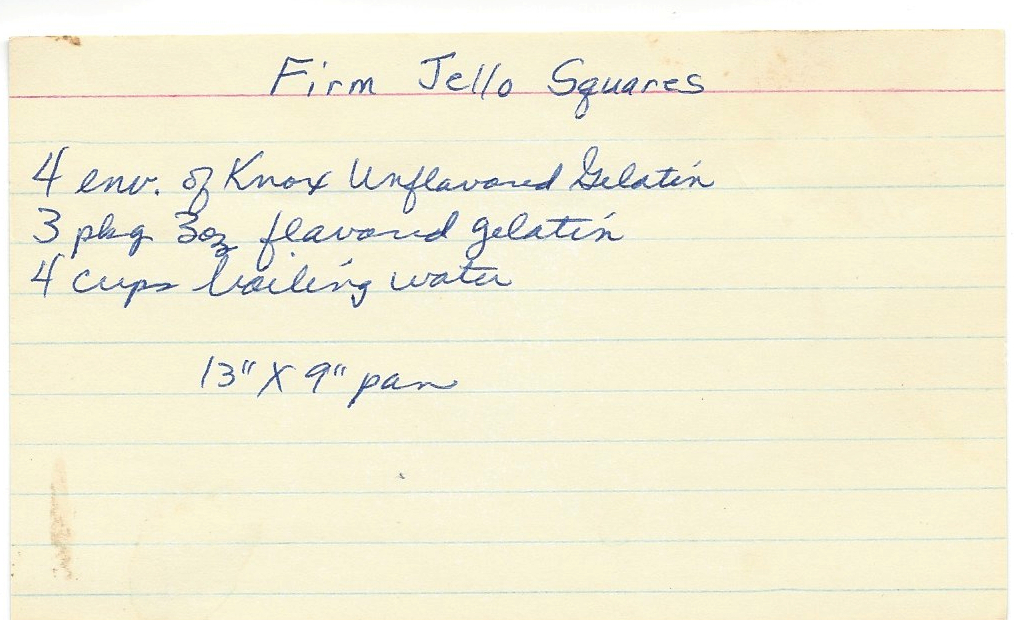 Firm Jello Squares
4 env. of Knox Unflavored Gelatin
3 pkg 3oz flavored gelatin
4 cups boiling water
13" X 9" pan